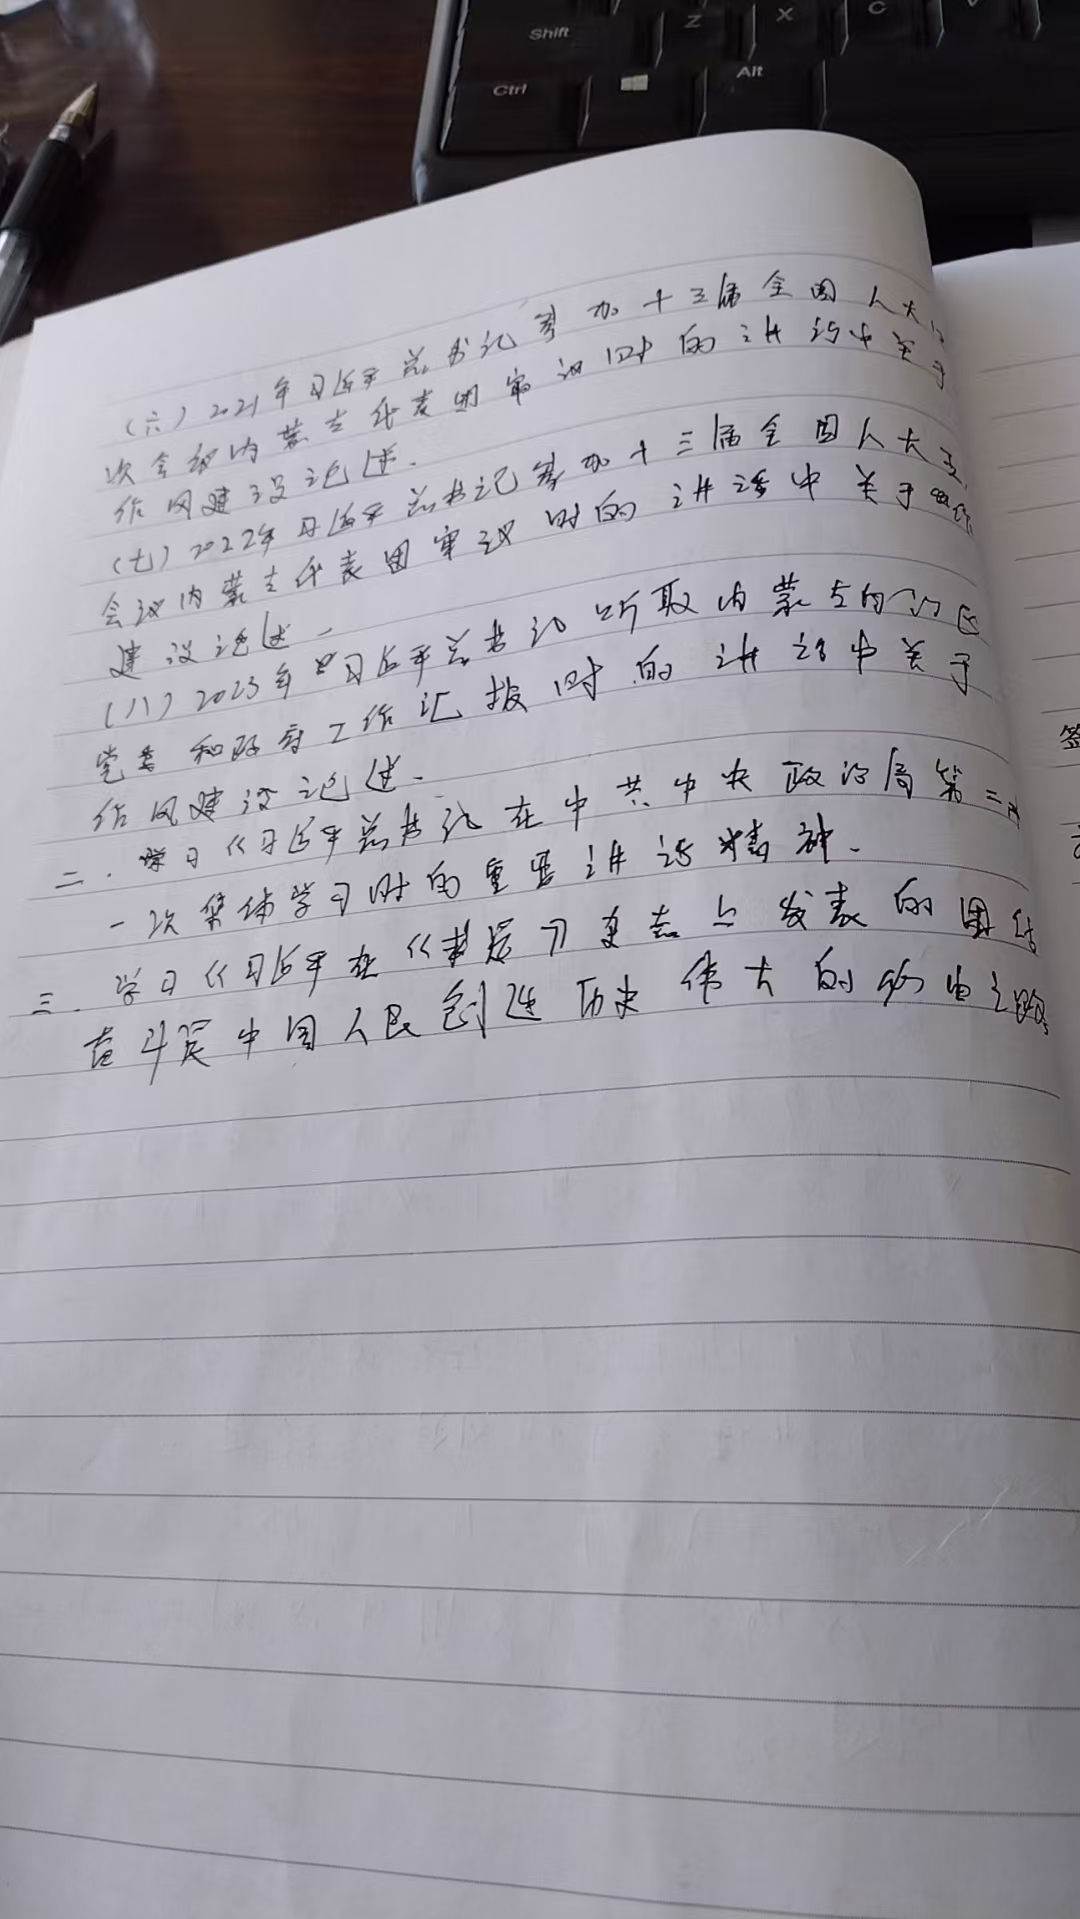 Shift
Z
X
C
Ctrl
Alt
(六)2021年习近平总书记参加十三届全国人大四
次会议内蒙古代表团审议时的讲话中关于
作风建设论述.
(七)2022年习近平总书记参加十三届全国人大五
会议内蒙古代表团审议时的讲话中关于
建设论述.
(八)2023年习近平总书记听取内蒙古自治区
党委和政府工作汇报时的讲话中关于
作风建设论述.
二.学习《习近平总书记在中共中央政治局第二十
一次集体学习时的重要讲话精神.
三.学习《习近平在《求是》杂志上发表的团结
奋斗是中国人民创造历史伟大的必由之路
签